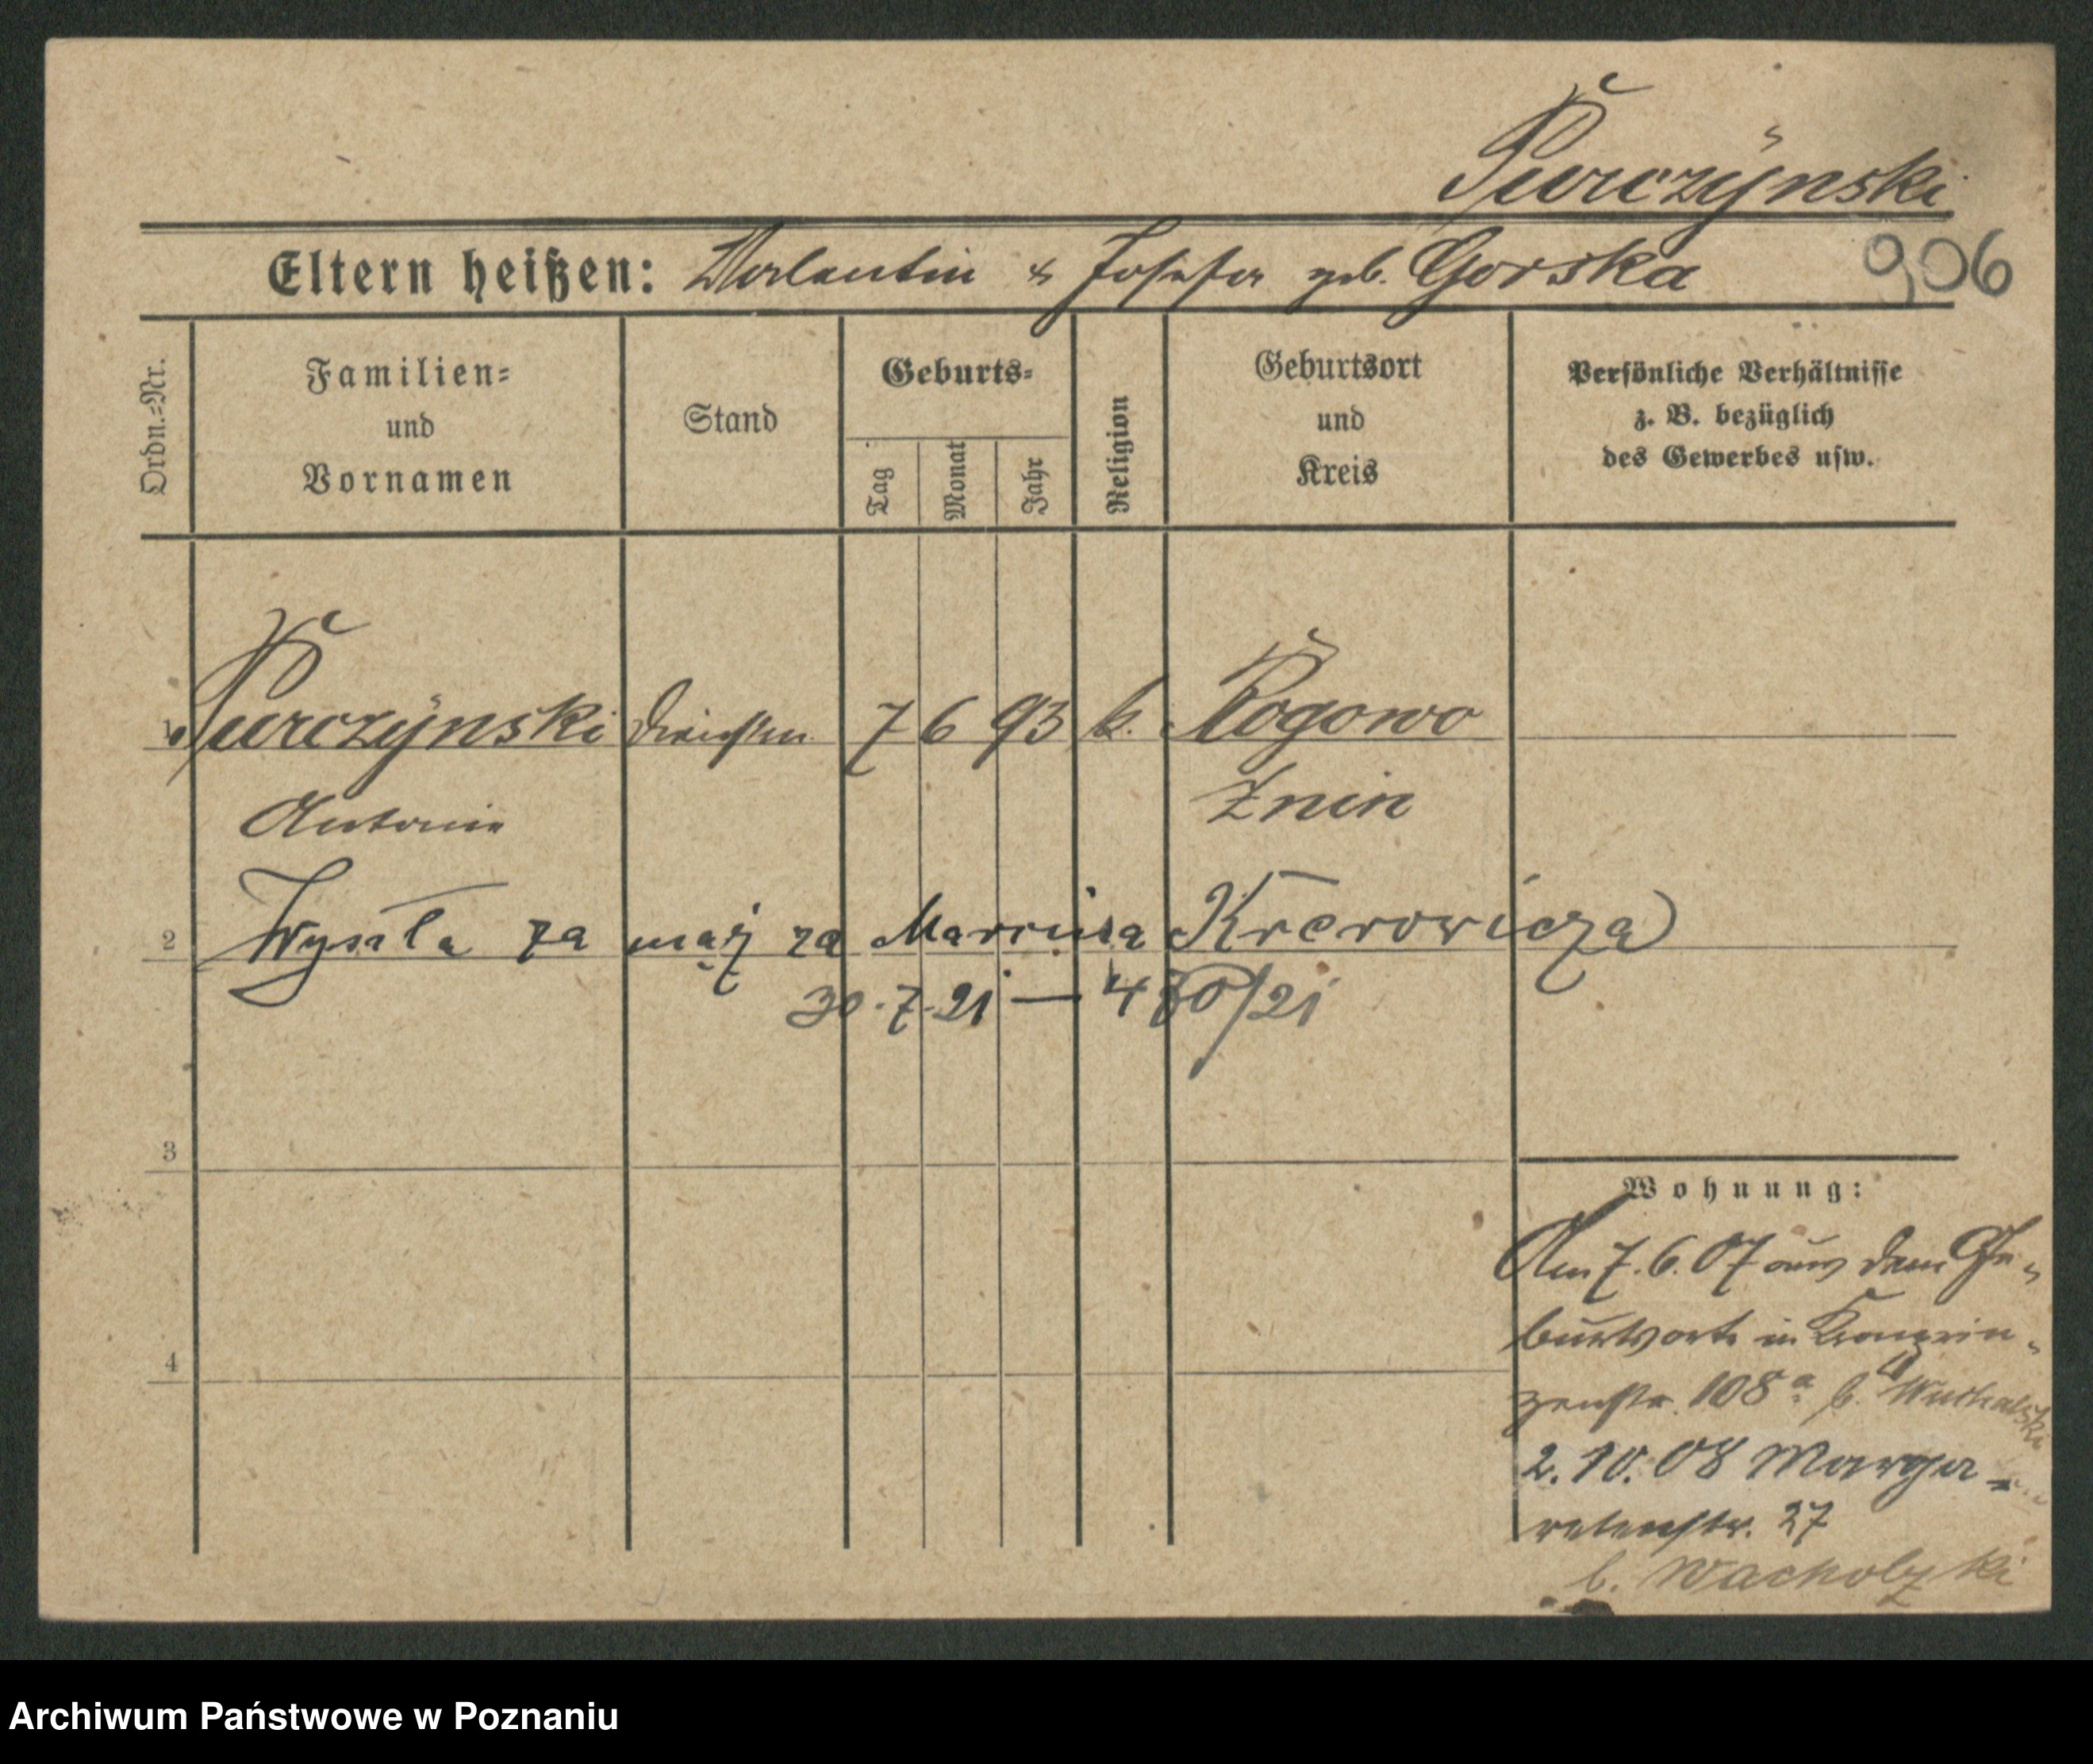 Purczynski
906
Eltern heißen: Valentin & Josefa geb. Gorska
Ordn.=Nr.
Familien=
und
Vornamen
Stand
Geburts=
Tag
Monat
Jahr
Religion
Geburtsort
und
Kreis
Persönliche Verhältnisse
z. B. bezüglich
des Gewerbes usw.
1 Purczynski 7 6 93 k. Rogowo
Antonie Znin
2 Wyszła za mąż za
30.7.21 — /21
3
Wohnung:
Am 7.6.07 aus dem Ge-
burtsorte in Kronprin-
4
zenstr. 108a b.
2.10.08 Marga-
retenstr. 27
b. Wacholzki
Archiwum Państwowe w Poznaniu